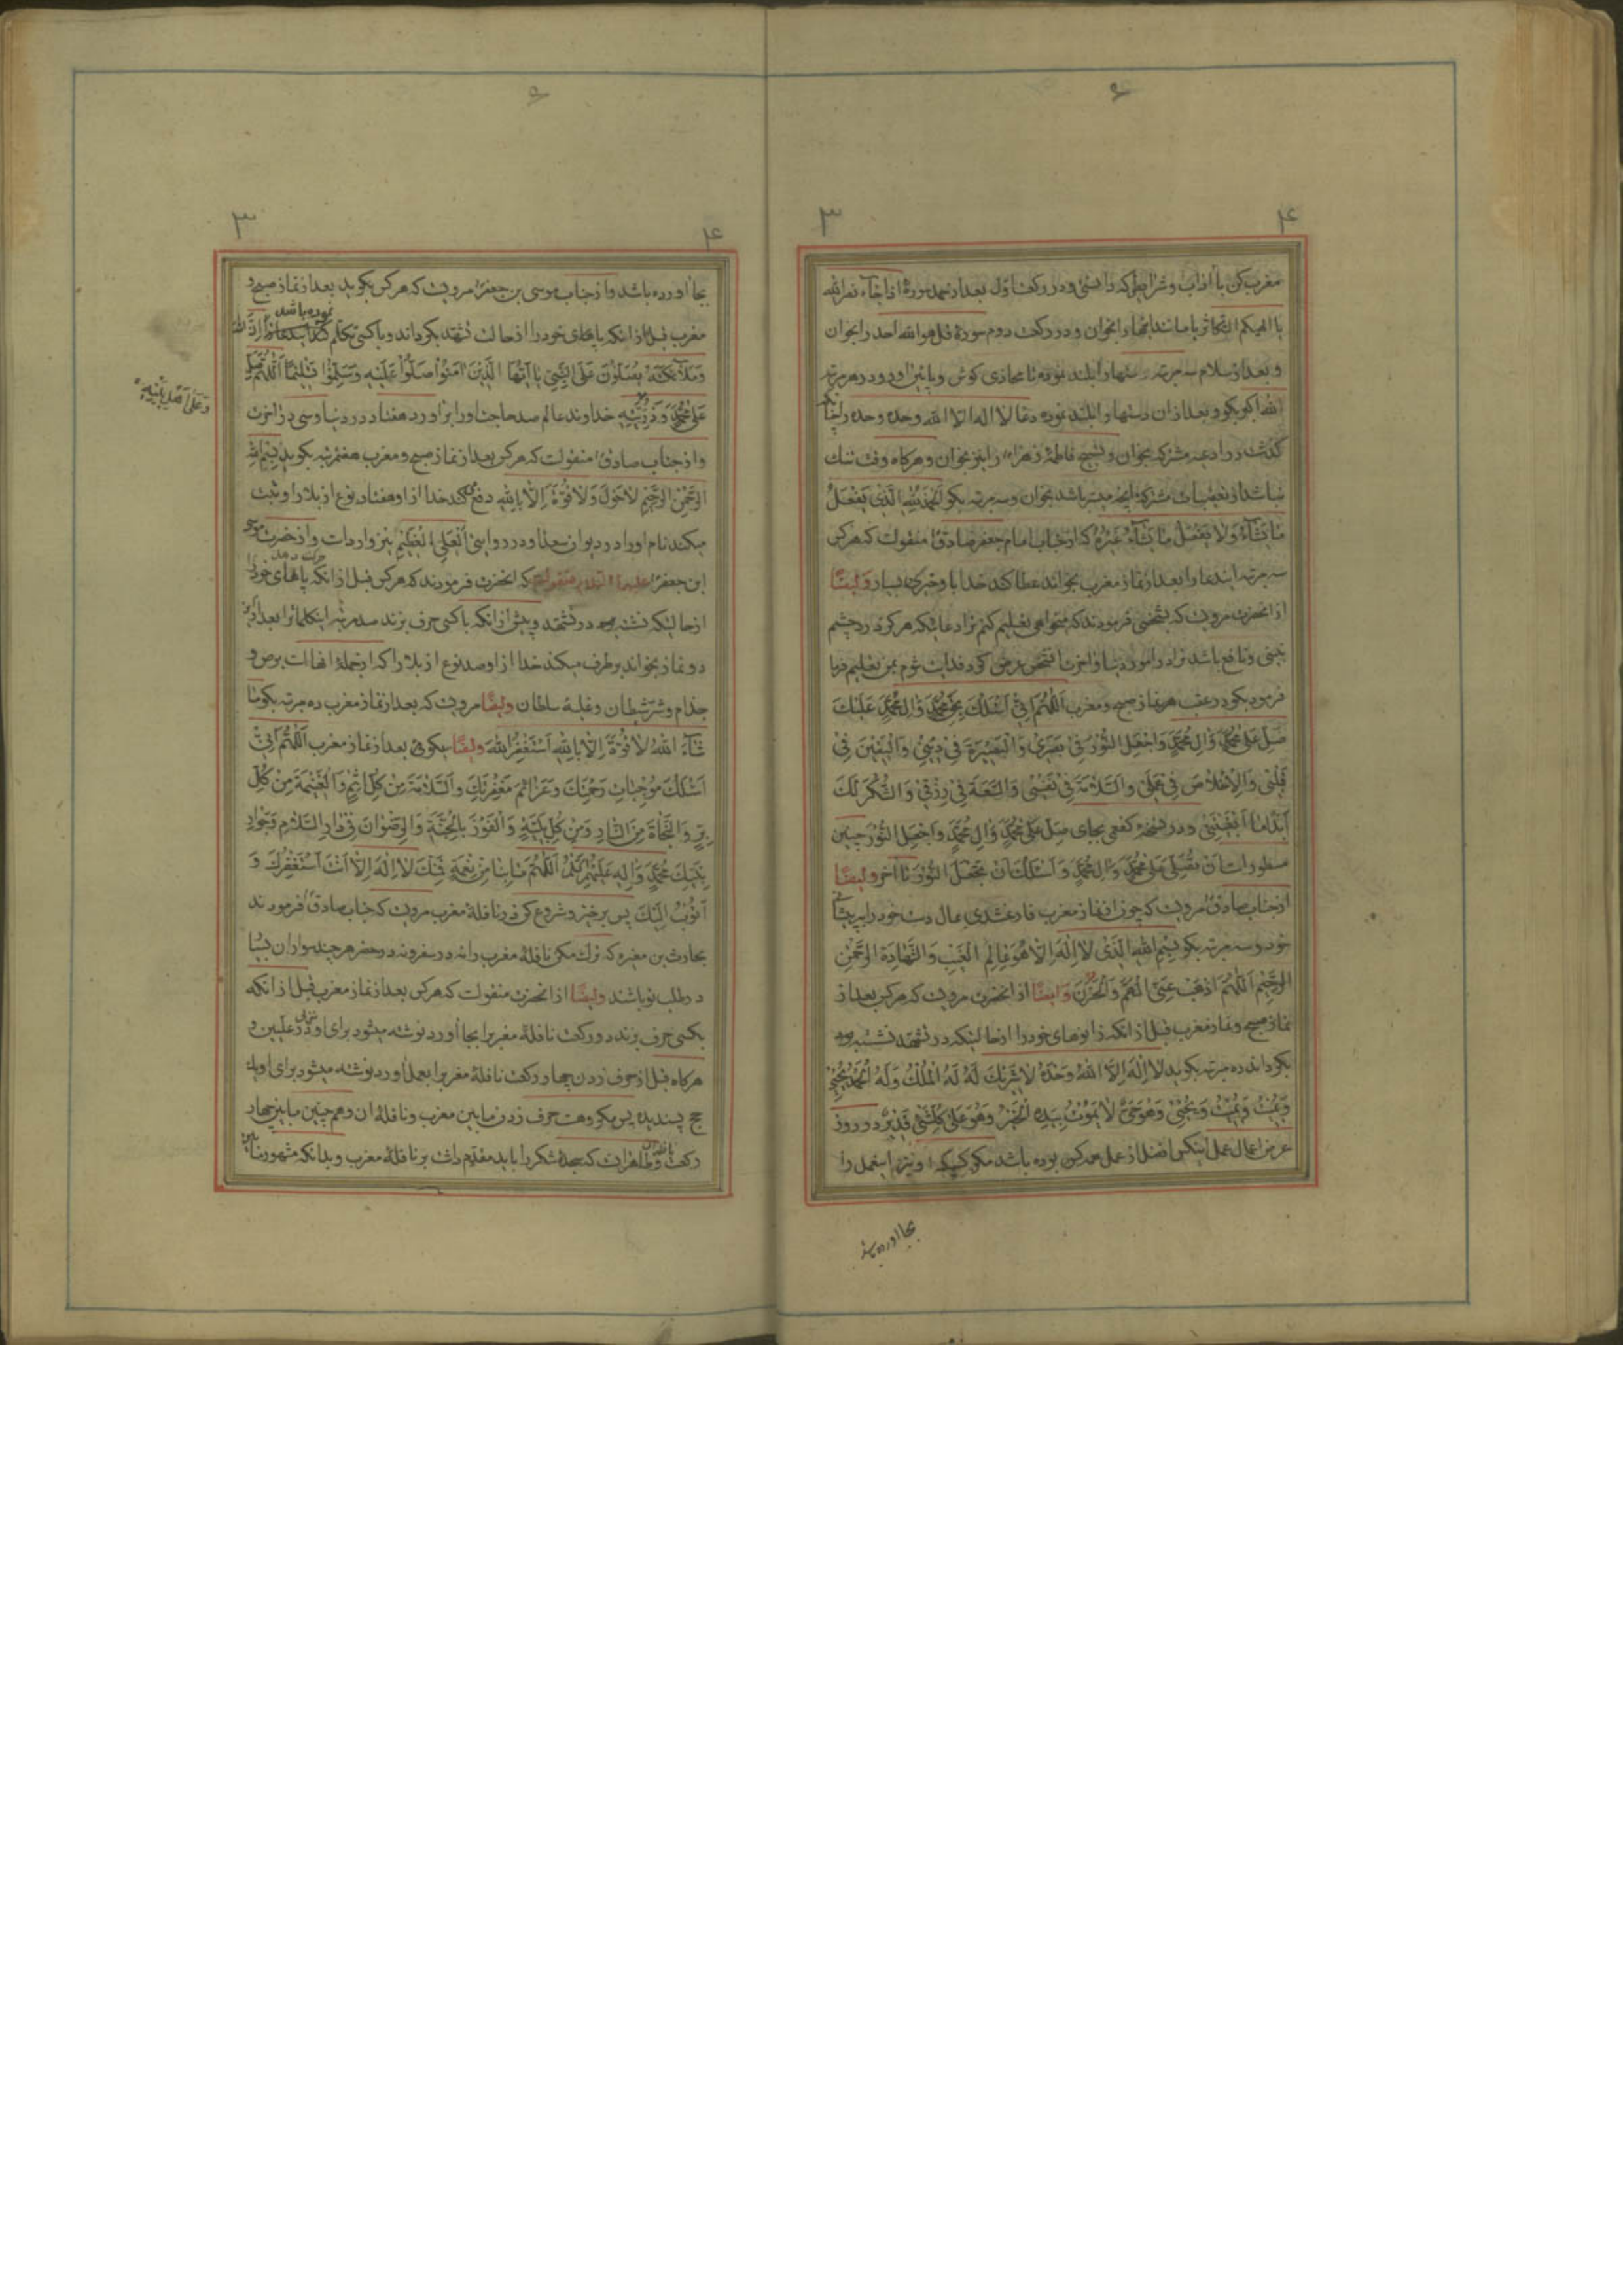 مغرب کن با اداب و شرایطی که دانستی و در رکعت اول بعد از حمد سورهٔ اذا جاء نصر الله
یا الهیکم التکاثر یا مانند اینها را بخوان و در رکعت دوم سورهٔ قل هو الله احد را بخوان
و بعد از سلام سه مرتبه دستها را بلند نموده تا محاذی کوش و پائین اورد و در هر مرتبه
الله اکبر بکو و بعد از ان دستها را بلند نموده دعا لا اله الا الله وحده وحده را چنانکه
کذشت در ادعیه مشترکه بخوان و تسبیح فاطمهٔ زهراء را نیز بخوان و هرکاه وقت تنک
نباشد از تعقیبات مشترکه انچه میسر باشد بخوان و سه مرتبه بکو الحمد لله الذی یفعل
ما یشاء و لا یفعل ما یشاء غیره که از جناب امام جعفر صادق منقولست که هرکس
سه مرتبه ایندعا را بعد از نماز مغرب بخواند عطا کند خدا باو خیرهای بسیار و ایضًا
از انحضرت مرویست که بشخصی فرمودند که میخواهی تعلیم کنم ترا دعائیکه هرکز درد چشم
نبینی و نافع باشد ترا در امور دنیا و اخرت انشخص عرض کرد فدایت شوم بمن تعلیم فرما
فرمود بکو در عقب هر نماز صبح و مغرب اللهم انی اسئلک بحق محمد و ال محمد علیک
صل علی محمد و ال محمد و اجعل النور فی بصری و البصیرة فی دینی و الیقین فی
قلبی و الاخلاص فی عملی و السلامة فی نفسی و السعة فی رزقی و الشکر لک
ابدا ما ابقیتنی و در نسخهٔ کفعمی بجای صل علی محمد و ال محمد و اجعل النور چنین
مسطور است ان تصلی علی محمد و ال محمد و اسئلک ان تجعل النور تا آخر و ایضًا
از جناب صادق مرویست که چون از نماز مغرب فارغ شدی بمال دست خود را به پیشانی
خود و سه مرتبه بکو بسم الله الذی لا اله الا هو عالم الغیب و الشهادة الرحمن
الرحیم اللهم اذهب عنی الهم و الحزن و ایضًا از انحضرت مرویست که هرکس بعد از
نماز صبح و نماز مغرب قبل از انکه زانوهای خود را از حالتیکه در تشهد نشسته بود
بکرداند ده مرتبه بکوید لا اله الا الله وحده لا شریک له له الملک و له الحمد یحیی
و یمیت و یمیت و یحیی و هو حی لا یموت بیده الخیر و هو علی کلشئ قدیر در روز
عرض اعمال عمل اینکس افضل از عمل هرکس بوده باشد مکر کسیکه او نیز اینعمل را
بجا اورده باشد
بجا اورده باشد و از جناب موسی بن جعفر مرویست که هرکس بکوید بعد از نماز صبح و
مغرب قبل از انکه پاهای خود را از حالت تشهد بکرداند و با کسی تکلم نموده باشد ان الله
و ملائکته یصلون علی النبی یا ایها الذین امنوا صلوا علیه و سلموا تسلیما اللهم صل
علی محمد و ذریته خداوند عالم صد حاجت او را براورد هفتاد در دنیا و سی در اخرت
و علی اهل بیته
و از جناب صادق منقولست که هرکس بعد از نماز صبح و مغرب هفتمرتبه بکوید بسم الله
الرحمن الرحیم لا حول و لا قوة الا بالله دفع کند خدا از او هفتاد نوع از بلا را و ثبت
میکند نام او را در دیوان سعدا و در روایتی العلی العظیم نیز وارد است و از حضرت موسی
ابن جعفر علیه السلام منقولست که انحضرت فرمودند که هرکس قبل از انکه پاهای خود را
از حالتیکه نشسته بود در تشهد و پیش از انکه با کسی حرف بزند صد مرتبه اینکلمات را بعد از این
دو نماز بخواند برطرف میکند خدا از او صد نوع از بلا را که از جملهٔ انها است برص و
جذام و شر شیطان و غلبهٔ سلطان و ایضًا مرویست که بعد از نماز مغرب ده مرتبه بکو ما
شاء الله لا قوة الا بالله استغفر الله و ایضًا بکوئی بعد از نماز مغرب اللهم انی
اسئلک موجبات رحمتک و عزائم مغفرتک و السلامة من کل اثم و الغنیمة من کل
بر و النجاة من النار و من کل بلیة و الفوز بالجنة و الرضوان فی دار السلام و جوار
نبیک محمد و اله علیهم السلام اللهم ما بنا من نعمة فمنک لا اله الا انت استغفرک و
اتوب الیک پس برخیز و شروع کن در نافلهٔ مغرب مرویست که جناب صادق فرمودند
بحارث بن مغیره که ترک مکن نافلهٔ مغرب را نه در سفر و نه در حضر هر چند سواران بسیار
در طلب تو باشند و ایضًا از انحضرت منقولست که هرکس بعد از نماز مغرب قبل از انکه
بکسی حرف بزند دو رکعت نافلهٔ مغرب را بجا اورد نوشته میشود برای او در علیین و
هرکاه قبل از حرف زدن چهار رکعت نافلهٔ مغرب را بعمل اورد نوشته میشود برای او یک
حج پسندیده پس مکروهست حرف زدن مابین مغرب و نافلهٔ ان و همچنین مابین چهار
رکعت و ظاهر انست که سجدهٔ شکر را باید مقدم داشت بر نافلهٔ مغرب و بدانکه مشهور